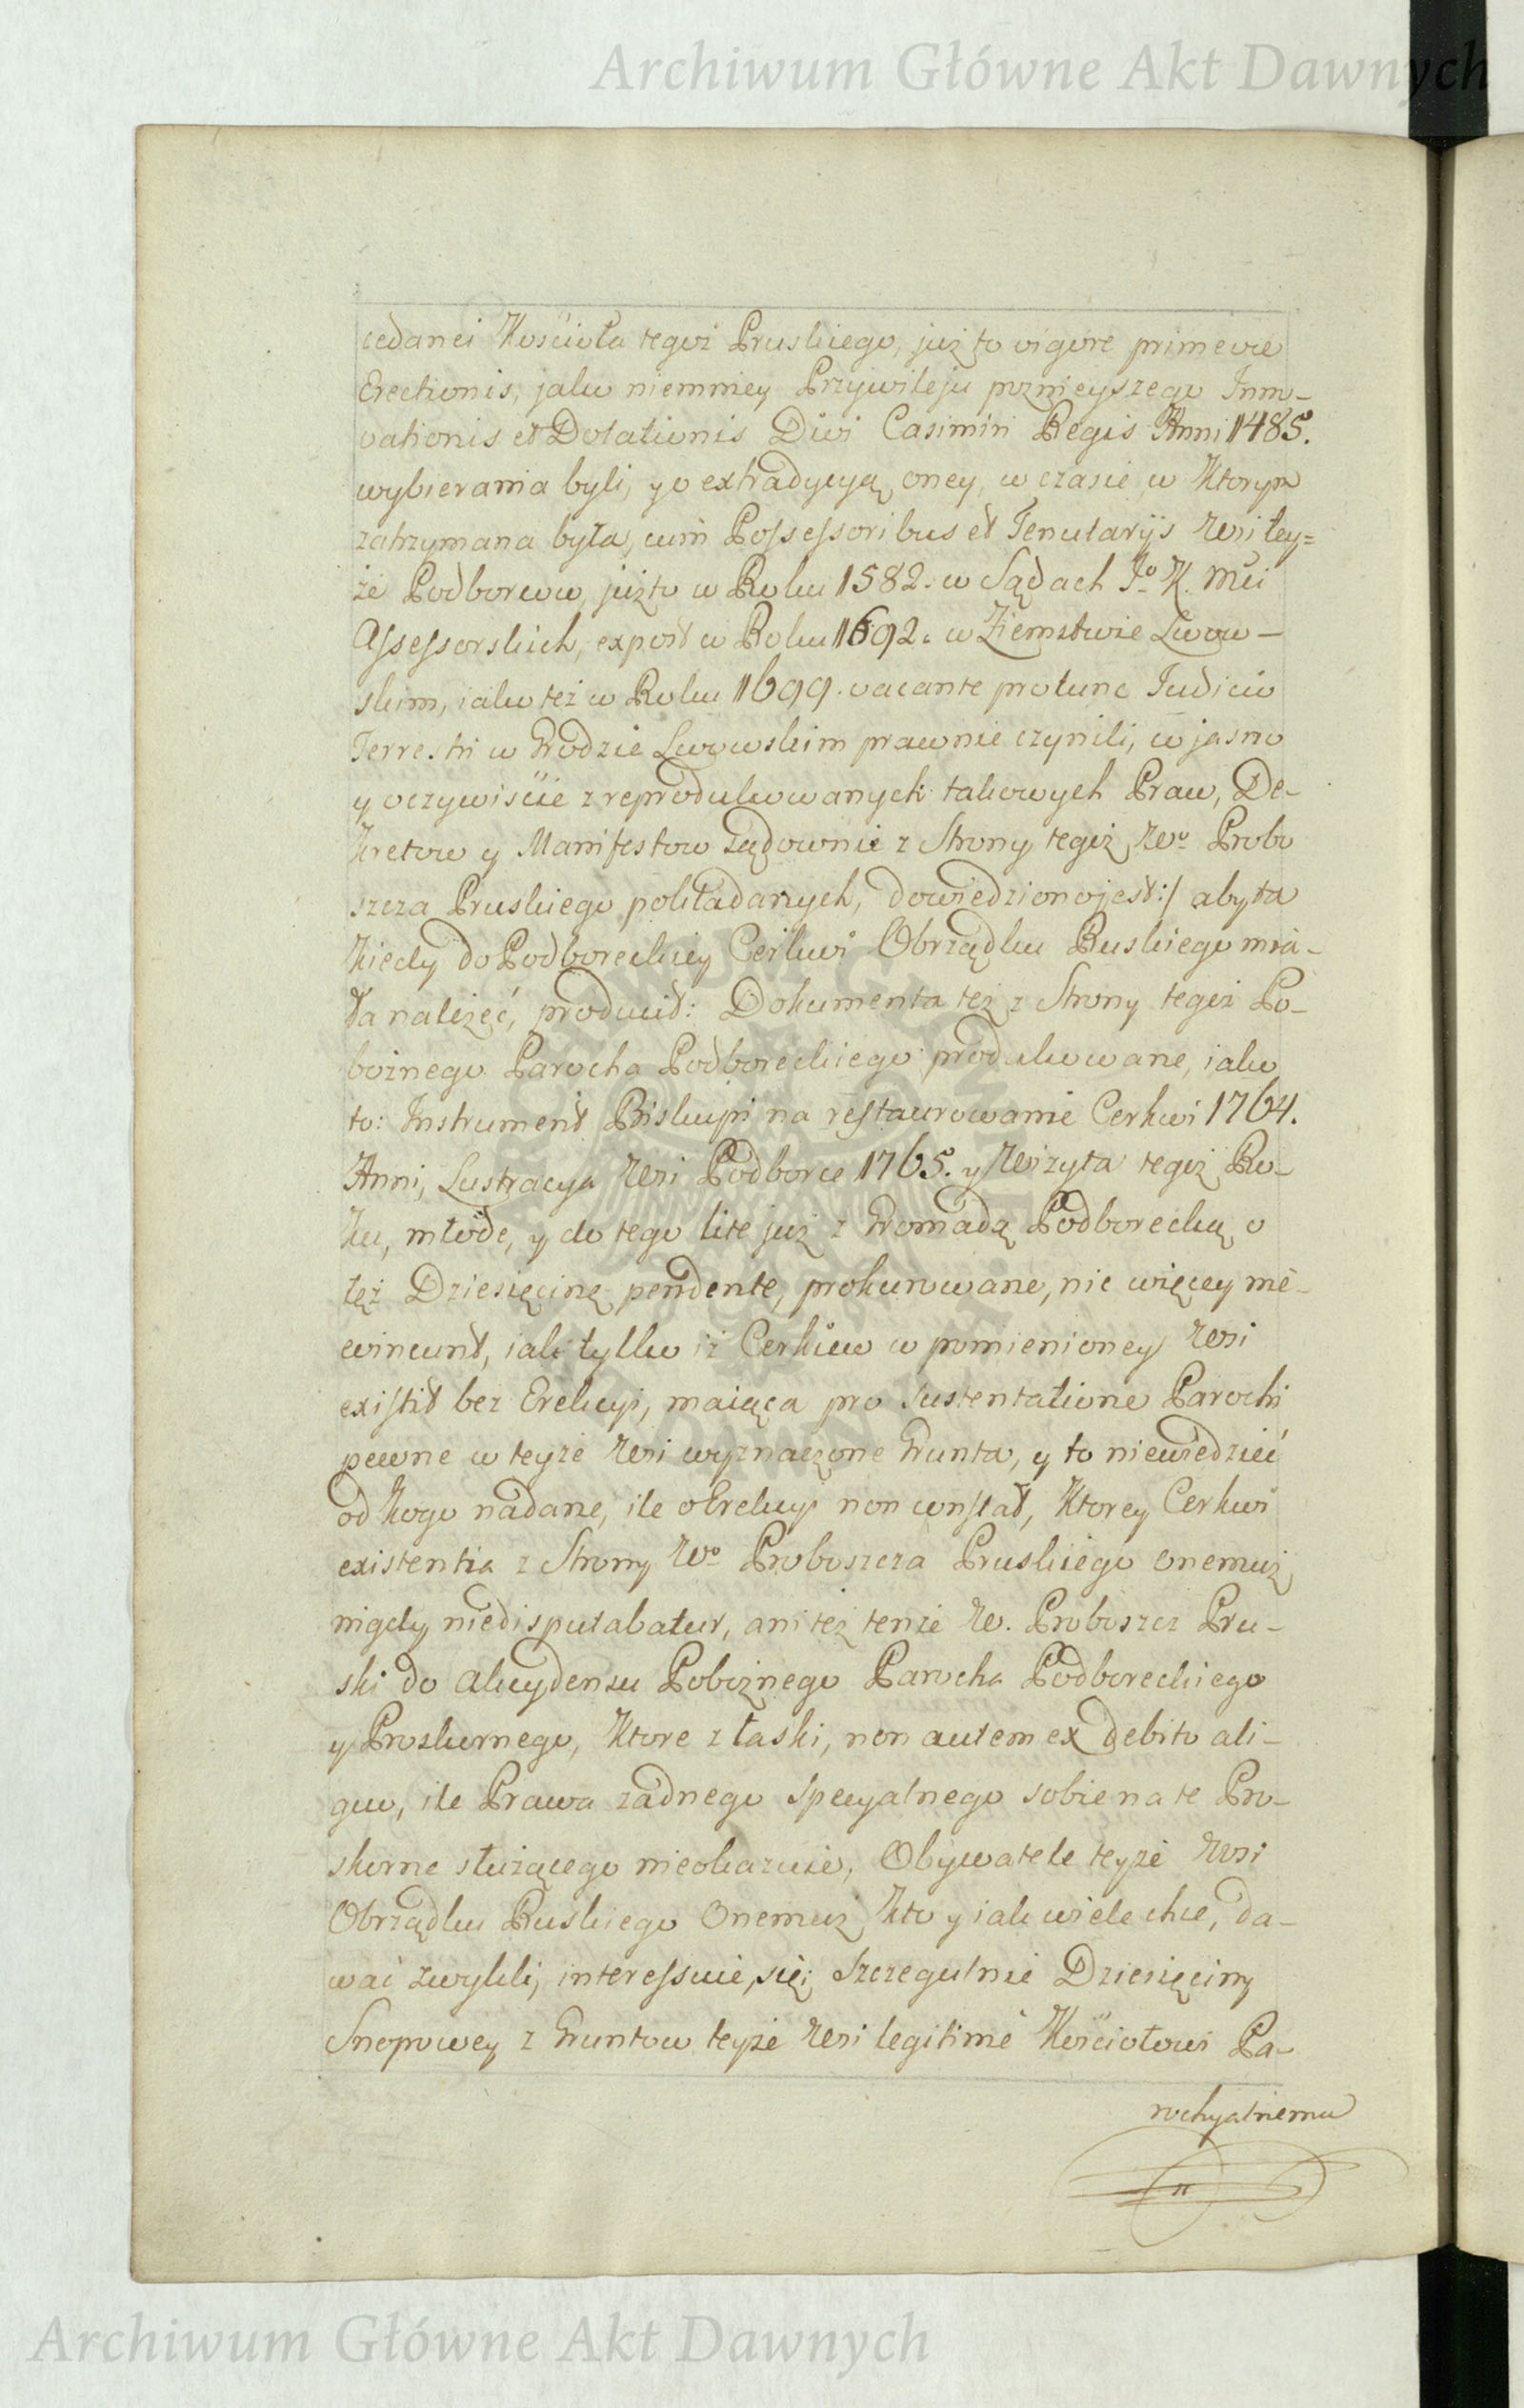 Archiwum Główne Akt Dawnych
cedanei Kościoła tegoż Pruskiego, już to vigore primevae
Erectionis, jako niemniey Przywileju poznieyszego Inno-
vationis et Dotationis Divi Casimiri Regis Anni 1485.
wybierania byli, y o extradycyą oney, w czasie w Ktorym
zatrzymana była, cum Possessoribus et Tenutarijs Wsi tey=
że Podborcow, już to w Roku 1582. w Sądach Jo K. Mci
Assessorskich, expost w Roku 1692. w Ziemstwie Lwow-
skim, iako też w Roku 1699. vacante protunc Judicio
Terrestri w Grodzie Lwowskim prawnie czynili, co jasno
y oczywiście z reprodukowanych takowych Praw, De-
kretow y Manifestow sądownie z Strony tegoż Wo Probo
szcza Pruskiego pokładanych, dowiedziono jest:/ aby ta
kiedy do Podboreckiey Cerkwi Obrządku Ruskiego mia-
ła należeć, producit: Dokumenta też z Strony tegoż Po-
bożnego Parocha Podboreckiego produkowane, iako
to: Instrument Biskupi na restaurowanie Cerkwi 1764.
Anni, Lustracya Wsi Podborce 1765. y Wizyta tegoż Ro-
ku, młode, y do tego lite już z Gromadą Podborecką o
też Dziesięcinę pendente, prokurowane, nic więcey nie-
evincunt, iak tylko iż Cerkiew w pomienioney Wsi
existit bez Erekcyi, maiąca pro sustentatione Parochi
pewne w teyże Wsi wyznaczone Grunta, y to niewiedzieć
od Kogo nadane, ile o Erekcyi non constat, Ktorey Cerkwi
existentia z Strony Wo Proboszcza Pruskiego onemuż
nigdy niedisputabatur, ani też tenże W. Proboszcz Pru-
ski do Akcydensu Pobożnego Parocha Podboreckiego
y Proskurnego, Ktore z łaski, non autem ex debito ali-
quo, ile Prawa żadnego specyalnego sobie na te Pro-
skurne służącego nieokazuie, Obywatele teyże Wsi
Obrządku Ruskiego Onemuż, Kto y iak wiele chce, da-
wać zwykli, interessuie się; Szczegulnie Dziesięciny
Snopowey z Gruntow teyże Wsi legitime Kościołowi Pa-
rochyalnemu
Archiwum Główne Akt Dawnych